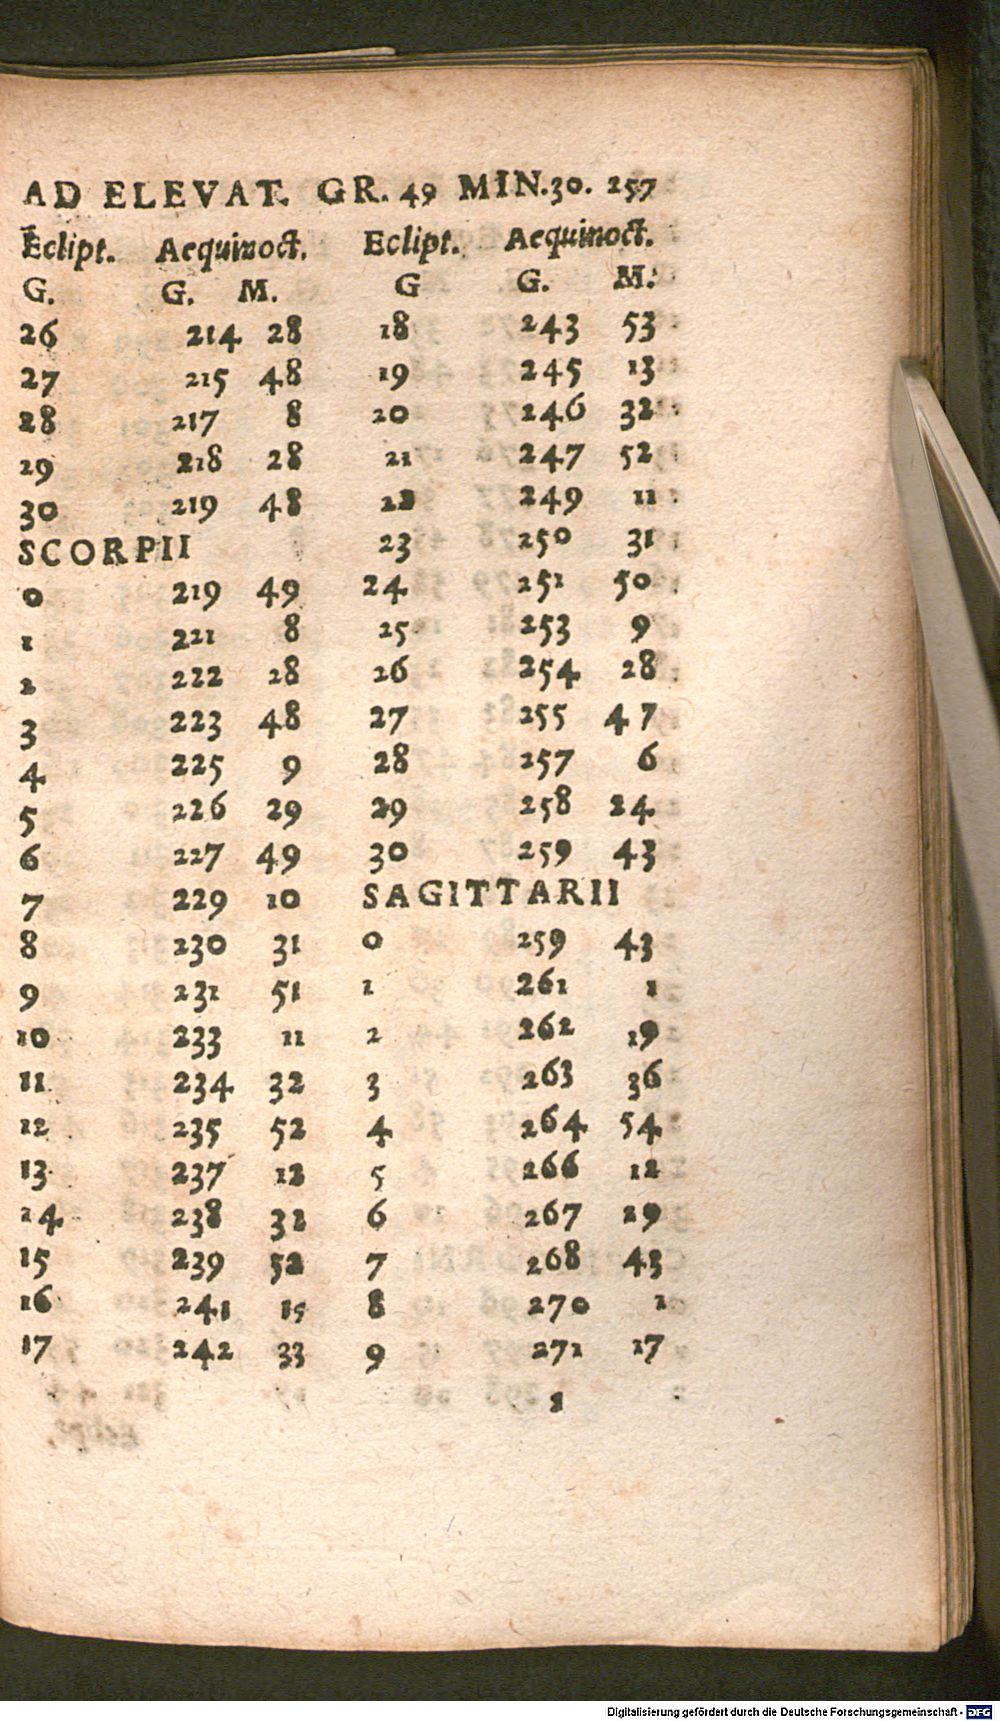 AD ELEVAT. GR. 49 MIN.30. 257
Eclipt. Aequinoct. Eclipt. Aequinoct.
G. G. M. G G. M.
26 214 28 18 243 53
27 215 48 19 245 13
28 217 8 20 246 32
29 218 28 21 247 52
30 219 48 22 249 11
SCORPII 23 250 31
0 219 49 24 251 50
1 221 8 25 253 9
2 222 28 26 254 28
3 223 48 27 255 47
4 225 9 28 257 6
5 226 29 29 258 24
6 227 49 30 259 43
7 229 10 SAGITTARII
8 230 31 0 259 43
9 231 51 1 261 1
10 233 11 2 262 19
11 234 32 3 263 36
12 235 52 4 264 54
13 237 12 5 266 12
14 238 32 6 267 29
15 239 52 7 268 43
16 241 15 8 270 1
17 242 33 9 271 17
Digitalisierung gefördert durch die Deutsche Forschungsgemeinschaft - DFG